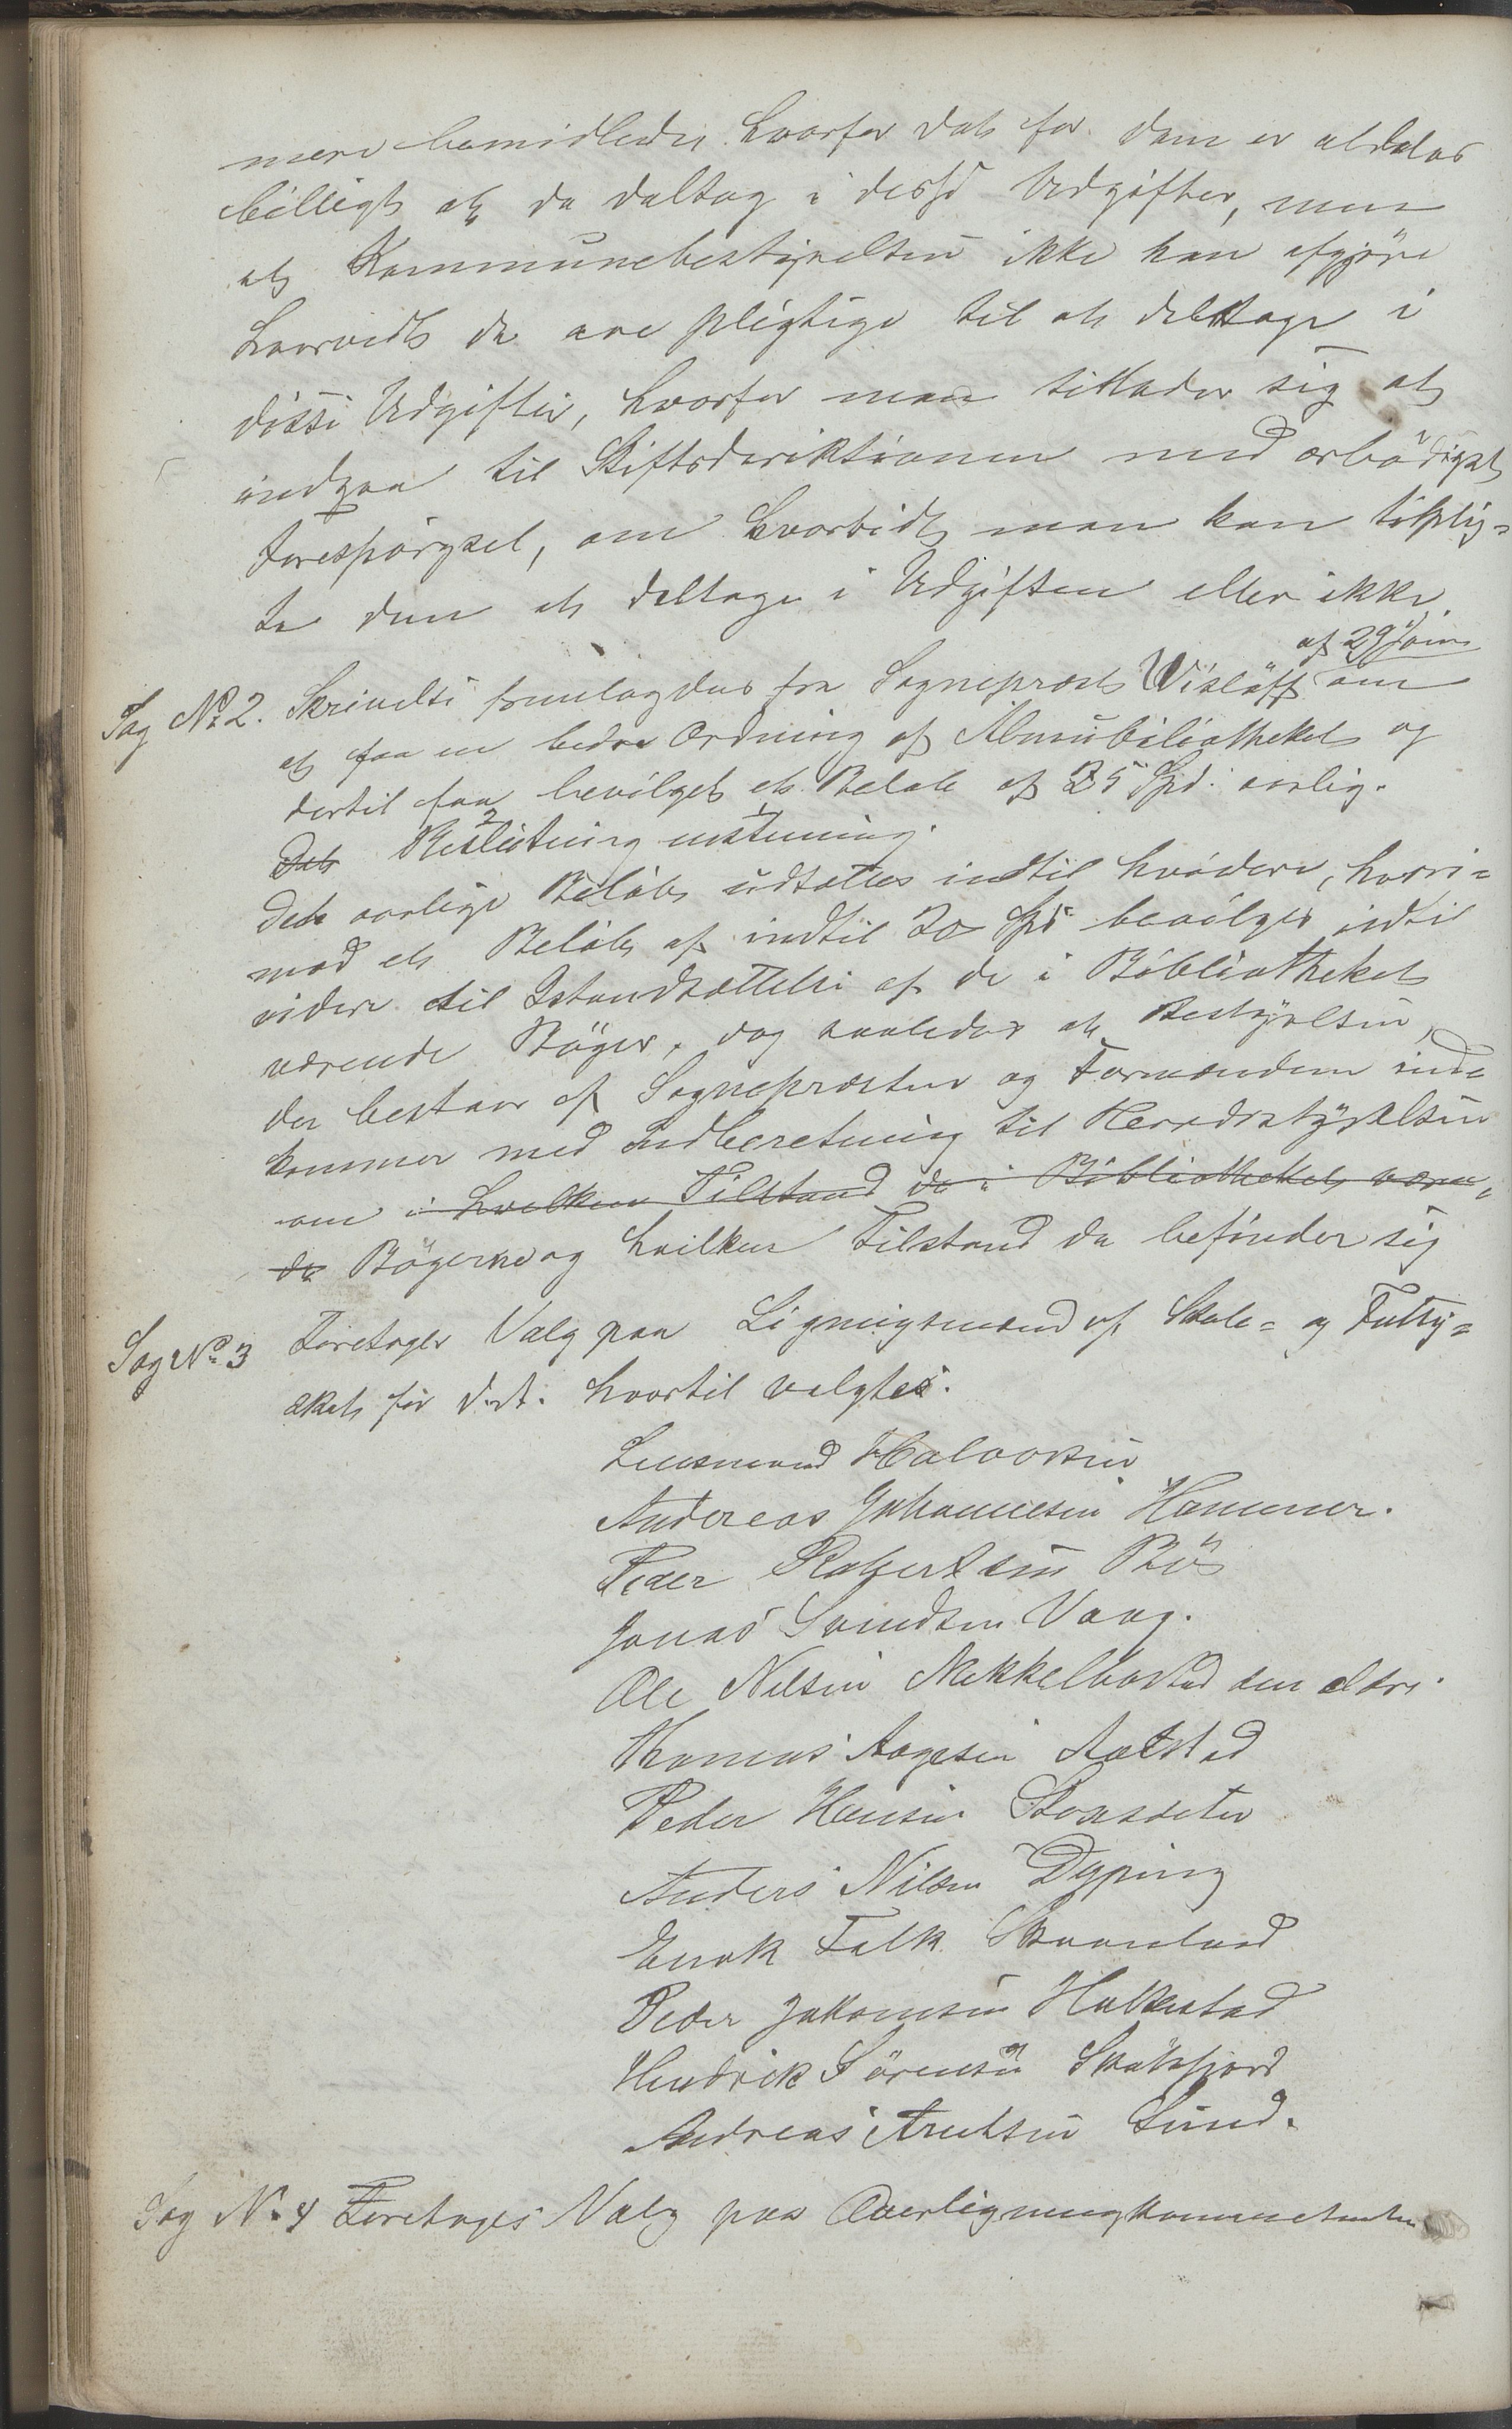 mere bemidlede hvorfor det for dem er aldeles
billigt at de deltag i disse Udgifter, men
at Kommunebestyrelsen ikke kan afgjöre
hvorvidt de ere pligtige til at deltage i
disse Udgifter, hvorfor man tillader sig at
indgaa til Stiftsderiktionen med ærbödigst
Forespörgsel, om hvorvidt man kan tilplig-
te dem at deltage i Udgiften eller ikke.
af 29 Juni
Sag No 2. Skrivelse fremlagdes fra Sognepræst Wislöff om
at faa en bedre Ordning af Almubibliotheket og
dertil faa bevilget et Beløb af 25 Spd. aarlig.
Det Beslutning enstemmig.
Det aarlige Beløb udsættes indtil hvidere, hvori-
mod et Beløb af indtil 20 Spd bevilges indtil
videre til Istandsættelse af de i Bibliotheket
værende Böger, dog saaledes at Bestyrelsen,
der bestaar af Sognepræsten og Formanden ind-
kommer med Indberetning til Herredsstyrelsen
om i hvilken Tilstand de i Bibliotheket væren-
de Bögerne og hvilken Tilstand de befinder sig
Sag No 3 Foretages Valg paa Ligningsmænd af Skole- og Fatty-
skat for d.A. hvortil valgtes.
Lensmand Halvorsen
Andereas Johannesen Hammer.
Peder Robertsen Bös
Jonas Svendsen Vaag.
Ole Nilsen Mekkelbostad den eldre.
Thomas Aagesen
Peder Hansen
Anders Nilsen Dyping
Enok Falk Skaanland
Peder Johansen
Hendrik Sörensen
Andreas Arntsen Sund.
Sag No 4 Foretages Valg paa Overligningskommeteen